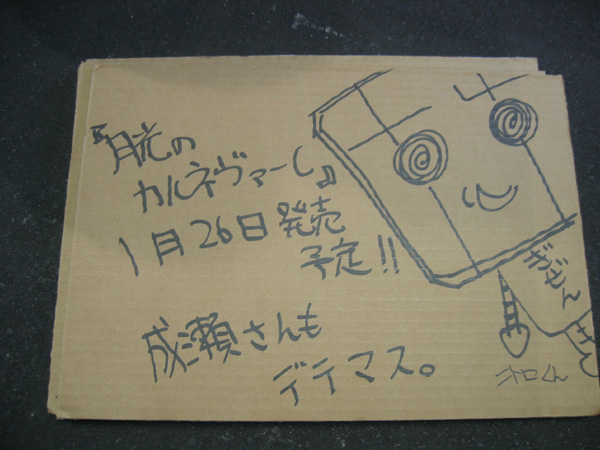 『月光の
カルネヴァーレ』
1月26日発売
予定!!
成瀬さんも
デテマス。
ニトロくん